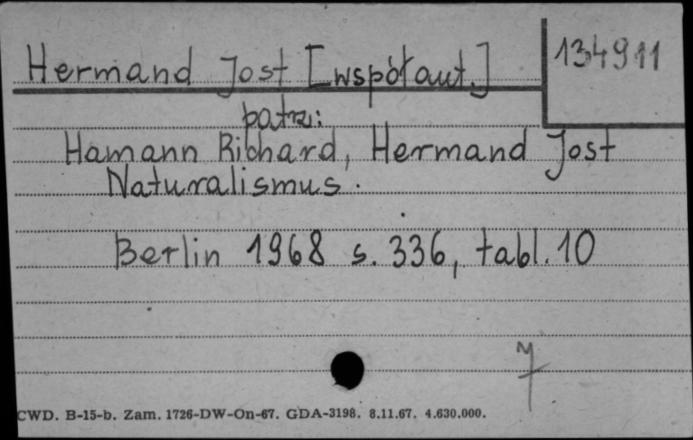 Hermand Jost [współaut.]
134911
patrz:
Hamann Richard, Hermand Jost
Naturalismus.
Berlin 1968 s. 336, tabl. 10
CWD. B-15-b. Zam. 1726-DW-On-67. GDA-3198. 8.11.67. 4.630.000.